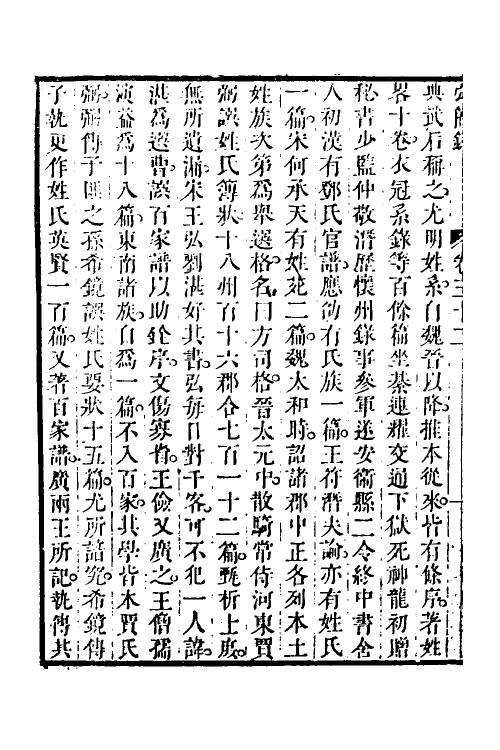 卷三十二
典武石稱之尤明姓系自魏晉以降推本從來皆有條序著姓
畧十卷衣冠系錄等百餘篇坐綦連耀交通下獄死神龍初贈
秘書少監仲敬潛歷懷州錄事參軍遂安衞縣二令終中書舍
人初漢有鄧氏官譜應劭有氏族一篇王符潛夫論亦有姓氏
一篇宋何承天有姓苑二篇魏太和時詔諸郡中正各列本土
姓族次第爲舉選格名曰方司格晉太元中散騎常侍河東賈
弼譔姓氏簿狀十八州百十六郡合七百一十二篇甄析士庶
無所遺漏宋王弘劉湛好其書弘每日對千客可不犯一人諱
湛爲選曹譔百家譜以助銓序文傷寡省王儉又廣之王僧孺
演益爲十八篇東南諸族自爲一篇不入百家其學皆本賈氏
弼弼傳子匪之孫希鏡譔姓氏要狀十五篇尤所諳究希鏡傳
子執更作姓氏英賢一百篇又著百家譜廣兩王所記執傳其